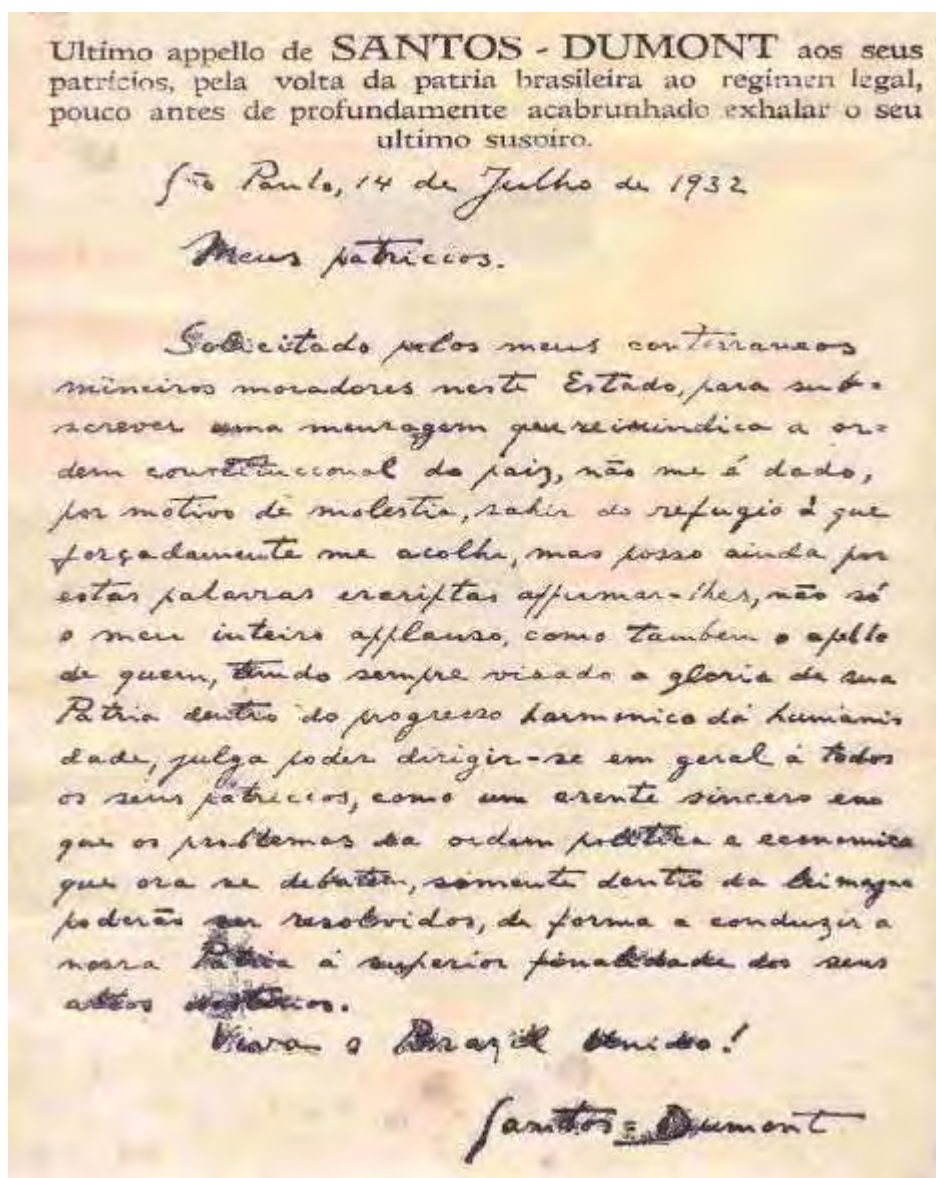 Ultimo appello de SANTOS - DUMONT aos seus
patricios, pela volta da patria brasileira ao regimen legal,
pouco antes de profundamente acabrunhado exhalar o seu
ultimo suspiro.
São Paulo, 14 de Julho de 1932
Meus patriccios.
Solicitado pelos meus conterraneos
mineiros moradores neste Estado, para sub-
screver uma mensagem que reivindica a or-
dem constituccional do paiz, não me é dado,
por motivo de molestia, sahir do refugio á que
forçadamente me acolhi, mas posso ainda por
estas palavras escriptas affirmar-lhes, não só
o meu inteiro applauso, como tambem o apello
de quem, tendo sempre visado a gloria da sua
Patria dentro do progresso harmonico da humani-
dade, julga poder dirigir-se em geral a todos
os seus patriccios, como um crente sincero em
que os problemas da ordem politica e economica
que ora se debatem, somente dentro da
poderão ser resolvidos, de forma a conduzir a
nossa Patria á superior finalidade dos seus
altos destinos.
Viva o Brazil Unido!
Santos=Dumont